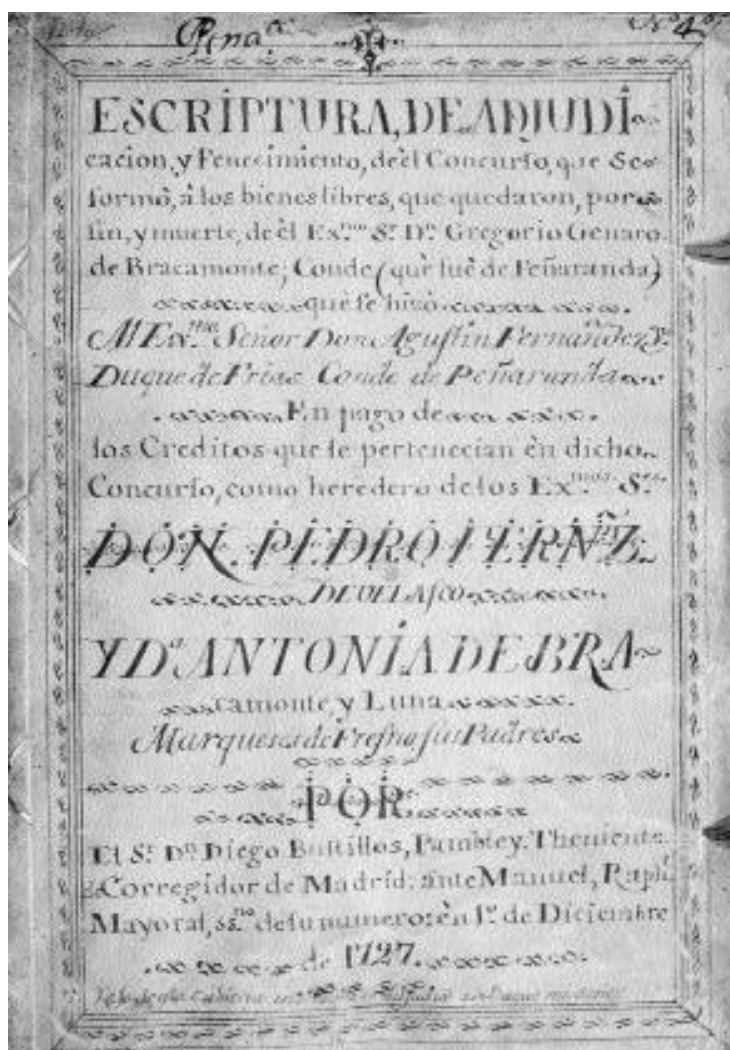 Pñaᵃ
Nº 4º
ESCRIPTURA, DE ADJUDI~
cacion, y Fenecimiento, de èl Concurso, que se
formò, à los bienes libres, que quedaron, por
fin, y muerte, de èl Ex.ᵐᵒ Sʳ. Dⁿ. Gregorio Genaro
de Bracamonte; Conde (què fuè de Peñaranda)
que se hizo
Al Ex.ᵐᵒ Señor Don Agustin Fernañdez
Duque de Frias Conde de Peñaranda
En pago de
los Creditos que le pertenecian èn dicho
Concurso, como heredero de los Ex.ᵐᵒˢ Sʳᵉˢ
DON. PEDRO FERNZ.
DE VELASCO
Y Dᵃ ANTONIA DE BRA~
camonte, y Luna
Marqueses de Fresno sus Padres
POR
El Sʳ. Dⁿ. Diego Bustillos, Pambley. Theniente
Corregidor de Madrid: ànte Manuel, Raphˡ.
Mayoral, ss.ⁿᵒ de su numero: èn 1º. de Diciembre
de 1727.